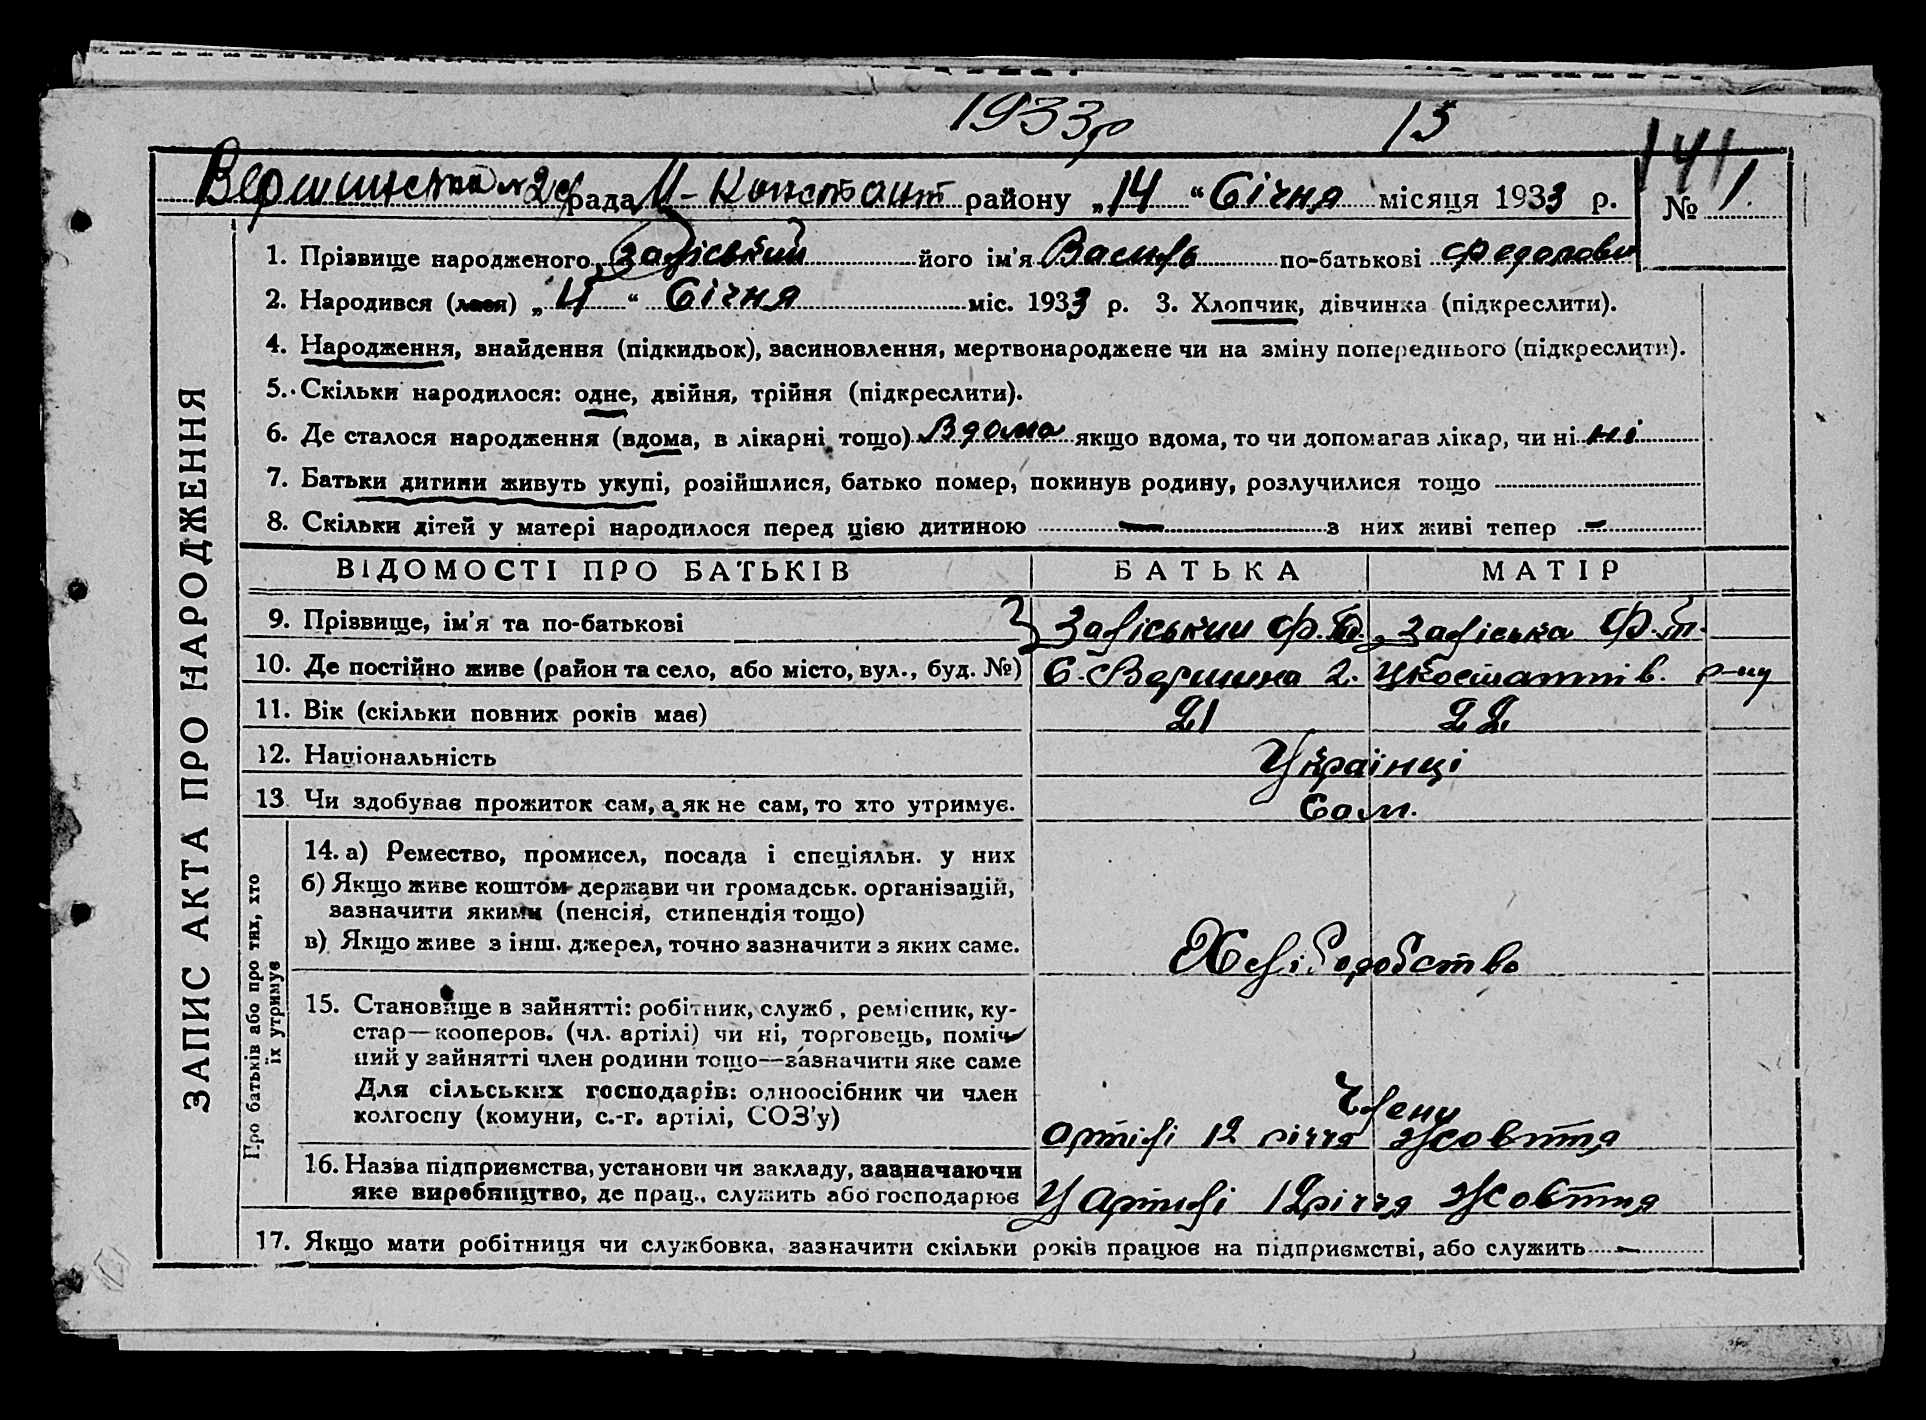 1933 р 13
141
Вершинська № 2 с/рада Н-Констант району „14“ Січня місяця 1933 р. № 1.
1. Прізвище народженого Заліський його ім'я Василь по-батькові Федорови
2. Народився (лася) „11“ Січня міс. 1933 р. 3. Хлопчик, дівчинка (підкреслити).
4. Народження, внайдення (підкидьок), васиновлення, мертвонароджене чи на зміну попереднього (підкреслити).
5. Скільки народилося: одне, двійня, трійня (підкреслити).
6. Де сталося народження (вдома, в лікарні тощо) Вдома якщо вдома, то чи допомагав лікар, чи ні ні
7. Батьки дитини живуть укупі, розійшлися, батько помер, покинув родину, розлучилися тощо
8. Скільки дітей у матері народилося перед цією дитиною — з них живі тепер —
ЗАПИС АКТА ПРО НАРОДЖЕННЯ
ВІДОМОСТІ ПРО БАТЬКІВ БАТЬКА МАТІР
9. Прізвище, ім'я та по-батькові Заліський Ф. Заліська Ф. т.
10. Де постійно живе (район та село, або місто, вул., буд. №) С. Вершина 2. р-ну
11. Вік (скільки повних років має) 21 22
12. Національність Українці
13. Чи здобував прожиток сам, а як не сам, то хто утримує. Сам.
Про батьків або про тих, хто їх утримує
14. а) Ремество, промисел, посада і спеціяльн. у них
б) Якщо живе коштом держави чи громадськ. організацій,
зазначити якими (пенсія, стипендія тощо)
в) Якщо живе з інш. джерел, точно зазначити з яких саме. Хліборобство
15. Становище в зайнятті: робітник, служб., ремісник, ку-
стар—кооперов. (чл. артілі) чи ні, торговець, поміч-
ний у зайнятті член родини тощо—зазначити яке саме
Для сільських господарів: одноосібник чи член Члени
колгоспу (комуни, с.-г. артілі, СОЗ'у) артілі 12 річчя Жовття
16. Назва підприємства, установи чи закладу, зазначаючи
яке виробництво, де прац., служить або господарює У Артилі 12 річчя Жовття
17. Якщо мати робітниця чи службовка, зазначити скільки років працює на підприємстві, або служить —